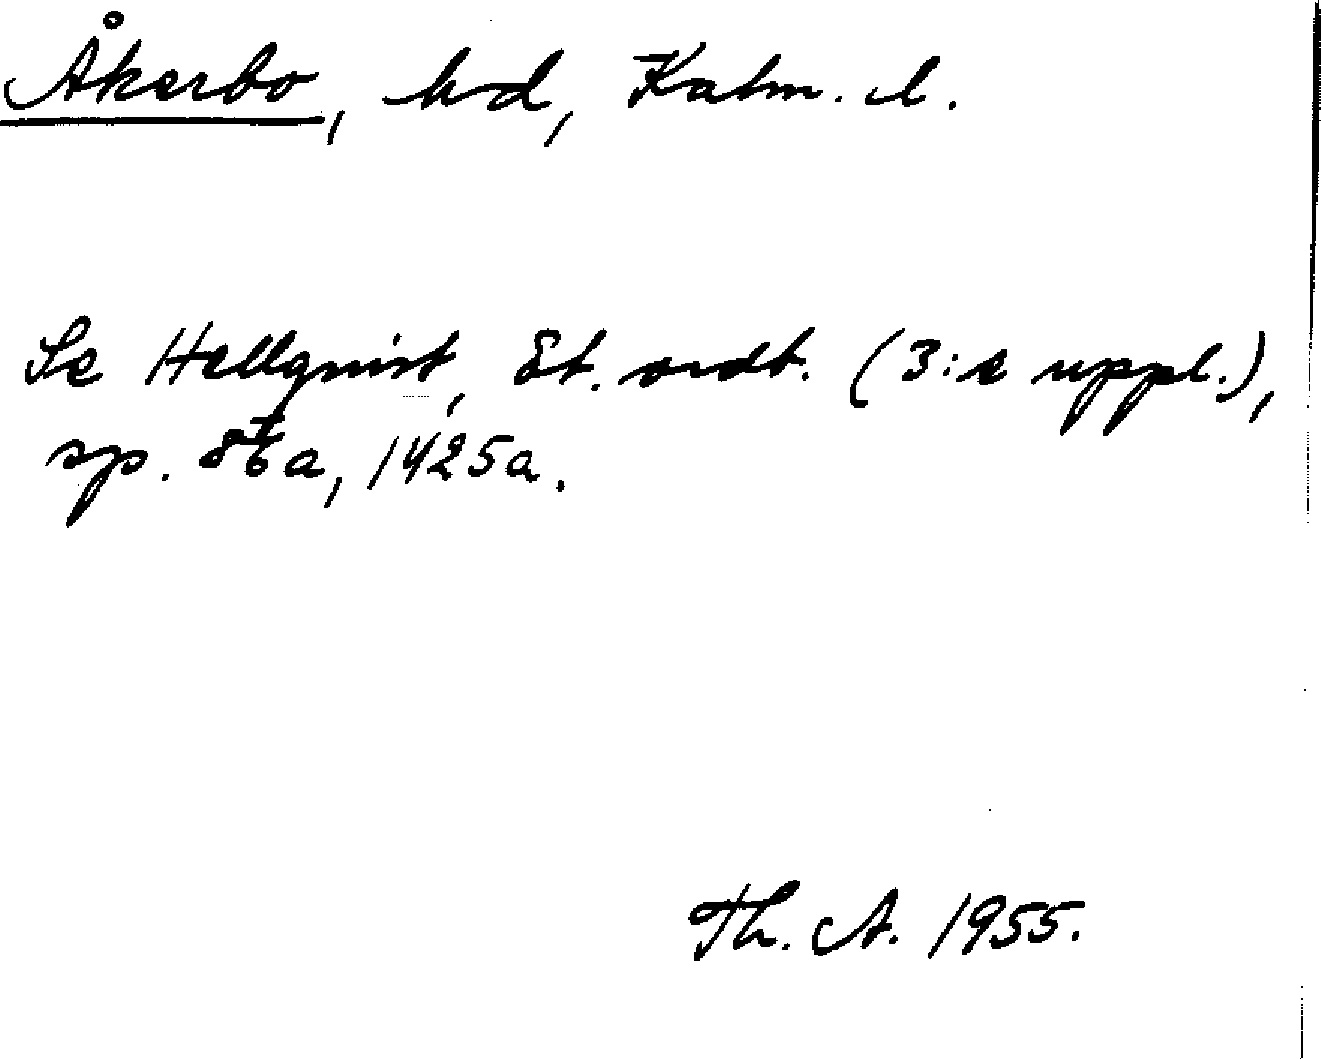 Åkerbo, hd, Kalm. l.
Se Hellquist, Et. ordb. (3:e uppl.),
sp. a, 1425a.
Th. A. 1955.